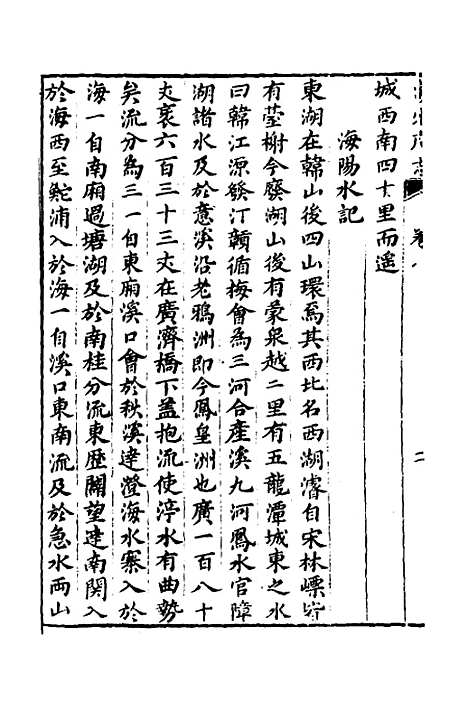 潮州府志 卷八 二
城西南四十里而遥
海陽水記
東湖在韓山後四山環焉其西北名西湖濬自宋林㟳皆
有臺榭今廢湖山後有蒙泉越二里有五龍潭城東之水
曰韓江源發汀贛循梅會為三河合產溪九河鳳水官障
湖諸水及於意溪沿老鴉洲即今鳳皇洲也廣一百八十
丈袤六百三十三丈在廣濟橋下蓋抱流使渟水有曲勢
矣流分為三一自東廂溪口會於秋溪達澄海水寨入於
海一自南廂過塘湖及於南桂分流東歴闗望達南関入
於海西至鮀浦入於海一自溪口東南流及於急水兩山